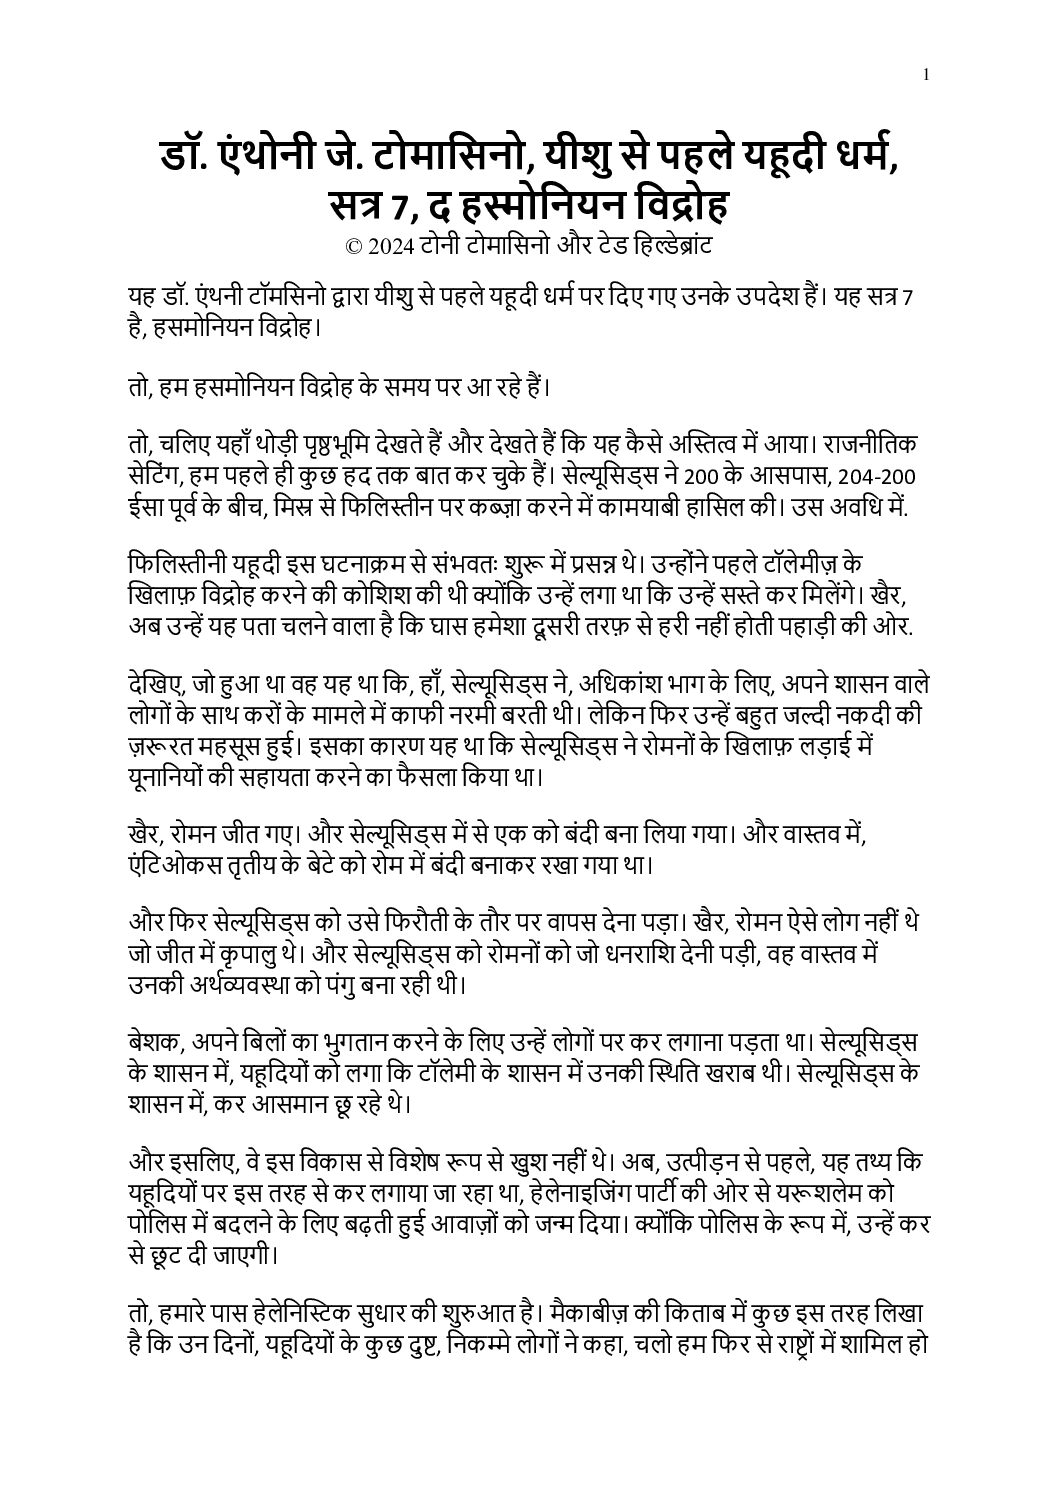 1
डॉ. एंथोनी जे. टोमासिनो, यीशु से पहले यहूदी धर्म,
सत्र 7, द हस्मोनियन विद्रोह
© 2024 टोनी टोमासिनो और टेड हिल्डेब्रांट
यह डॉ. एंथनी टॉमसिनो द्वारा यीशु से पहले यहूदी धर्म पर दिए गए उनके उपदेश हैं। यह सत्र 7
है, हसमोनियन विद्रोह।
तो, हम हसमोनियन विद्रोह के समय पर आ रहे हैं।
तो, चलिए यहाँ थोड़ी पृष्ठभूमि देखते हैं और देखते हैं कि यह कैसे अस्तित्व में आया। राजनीतिक
सेटिंग, हम पहले ही कुछ हद तक बात कर चुके हैं। सेल्यूसिड्स ने 200 के आसपास, 204-200
ईसा पूर्व के बीच, मिस्र से फिलिस्तीन पर कब्ज़ा करने में कामयाबी हासिल की। उस अवधि में.
फिलिस्तीनी यहूदी इस घटनाक्रम से संभवतः शुरू में प्रसन्न थे। उन्होंने पहले टॉलेमीज़ के
खिलाफ़ विद्रोह करने की कोशिश की थी क्योंकि उन्हें लगा था कि उन्हें सस्ते कर मिलेंगे। खैर,
अब उन्हें यह पता चलने वाला है कि घास हमेशा दूसरी तरफ़ से हरी नहीं होती पहाड़ी की ओर.
देखिए, जो हुआ था वह यह था कि, हाँ, सेल्यूसिड्स ने, अधिकांश भाग के लिए, अपने शासन वाले
लोगों के साथ करों के मामले में काफी नरमी बरती थी। लेकिन फिर उन्हें बहुत जल्दी नकदी की
ज़रूरत महसूस हुई। इसका कारण यह था कि सेल्यूसिड्स ने रोमनों के खिलाफ़ लड़ाई में
यूनानियों की सहायता करने का फैसला किया था।
खैर, रोमन जीत गए। और सेल्यूसिड्स में से एक को बंदी बना लिया गया। और वास्तव में,
एंटिओकस तृतीय के बेटे को रोम में बंदी बनाकर रखा गया था।
और फिर सेल्यूसिड्स को उसे फिरौती के तौर पर वापस देना पड़ा। खैर, रोमन ऐसे लोग नहीं थे
जो जीत में कृपालु थे। और सेल्यूसिड्स को रोमनों को जो धनराशि देनी पड़ी, वह वास्तव में
उनकी अर्थव्यवस्था को पंगु बना रही थी।
बेशक, अपने बिलों का भुगतान करने के लिए उन्हें लोगों पर कर लगाना पड़ता था। सेल्यूसिड्स
के शासन में, यहूदियों को लगा कि टॉलेमी के शासन में उनकी स्थिति खराब थी। सेल्यूसिड्स के
शासन में, कर आसमान छू रहे थे।
और इसलिए, वे इस विकास से विशेष रूप से खुश नहीं थे। अब, उत्पीड़न से पहले, यह तथ्य कि
यहूदियों पर इस तरह से कर लगाया जा रहा था, हेलेनाइजिंग पार्टी की ओर से यरूशलेम को
पोलिस में बदलने के लिए बढ़ती हुई आवाज़ों को जन्म दिया। क्योंकि पोलिस के रूप में, उन्हें कर
से छूट दी जाएगी।
तो, हमारे पास हेलेनिस्टिक सुधार की शुरुआत है। मैकाबीज़ की किताब में कुछ इस तरह लिखा
है कि उन दिनों, यहूदियों के कुछ दुष्ट, निकम्मे लोगों ने कहा, चलो हम फिर से राष्ट्रों में शामिल हो